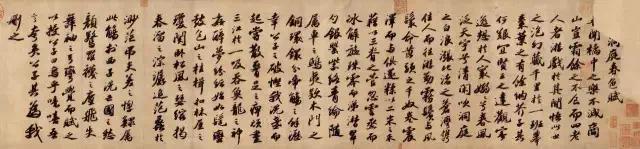 洞庭春色賦
吾聞橘中之樂不減商
山豈霜餘之不食而四老
人者游戲於其間悟此世
之泡幻藏千里於一班舉
棗葉之有餘納芥子其
何艱宜賢王之達觀寄
逸想於人寰嫋嫋兮春風
泛天宇兮清閑吹洞庭
之白浪漲北渚之蒼灣攜
佳人而往游勤霧鬢與風
鬟命黃頭之千奴卷震
澤而與俱還糅以二米之禾
藉以三脊之菅忽雲烝而
冰解旋珠零而涕潸翠
勺銀罌紫絡青綸隨
屬車之鴟夷款木門之
銅鐶分帝觴之餘瀝
幸公子之破慳我洗盞而
起嘗散腰足之痹頑盡
三江於一吸吞魚龍之神
姦醉夢紛紜始如髦蠻
鼓包山之桂楫扣林屋之
瓊關臥松風之瑟縮揭
春溜之淙潺追范蠡於
渺茫吊夫差之惸鰥屬
此觴於西子洗亡國之愁
顏驚羅襪之塵飛失
舞袖之弓彎覺而賦之
以授公子曰烏乎噫嘻吾
言夸矣公子其為我
刪之